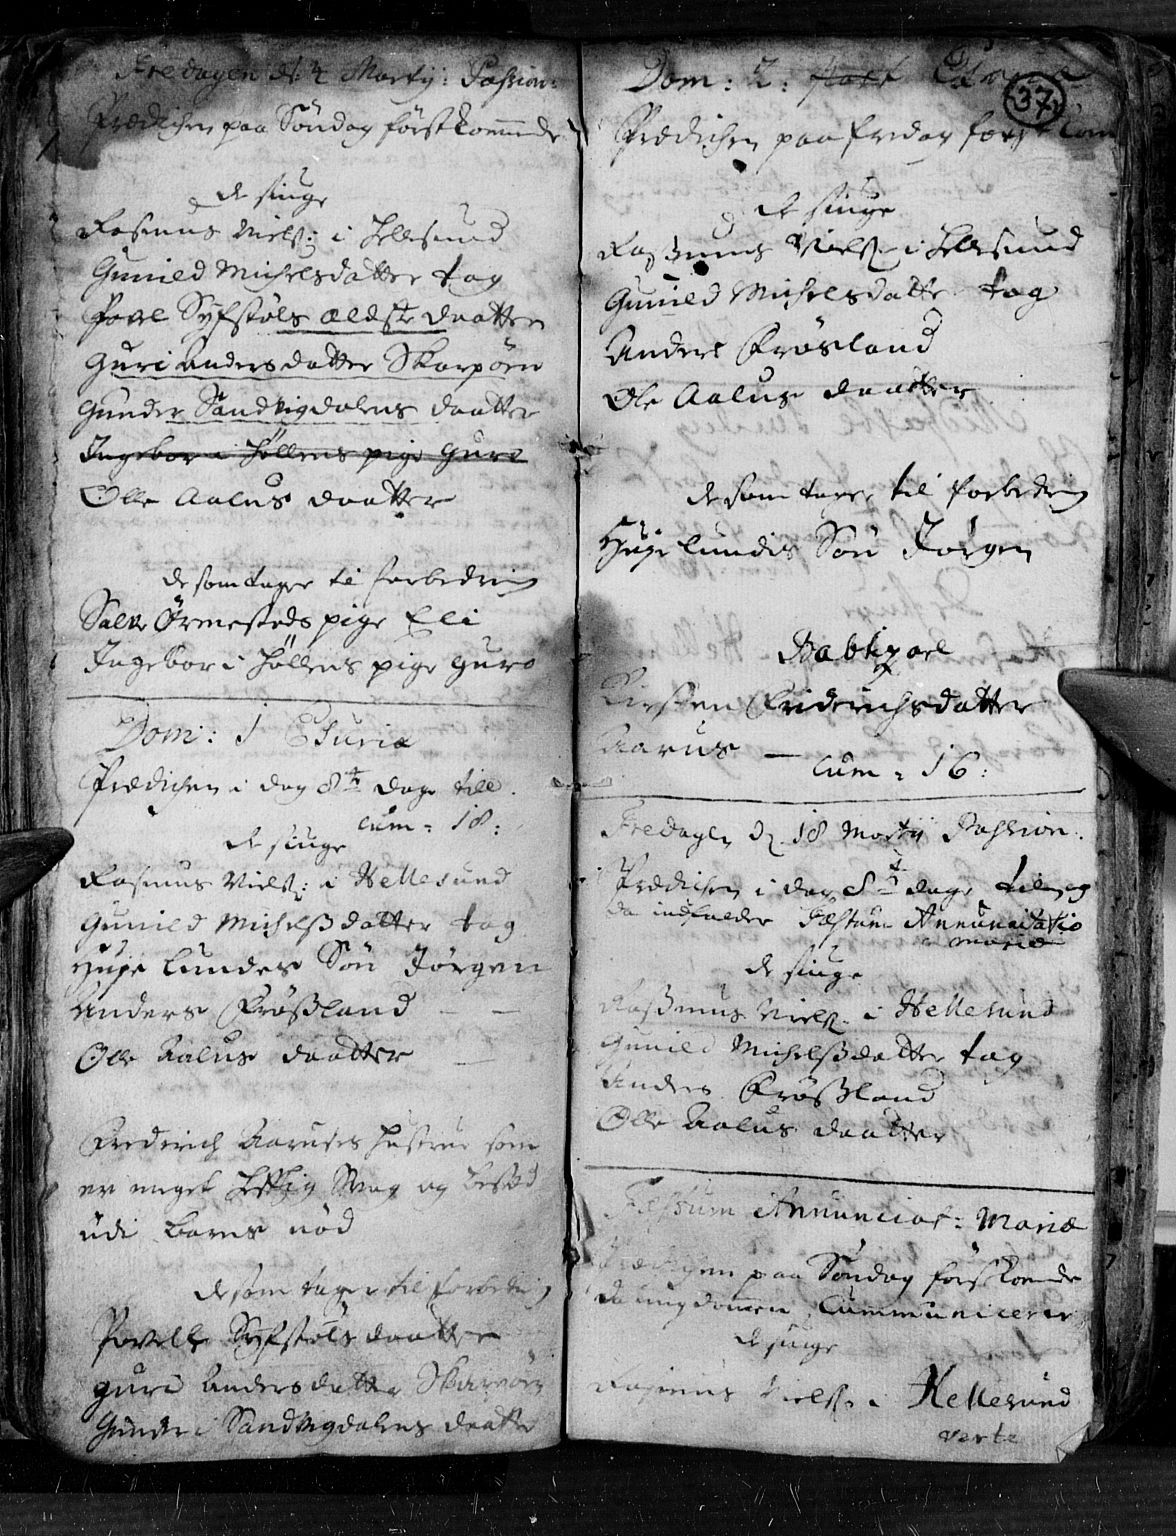 Fredagen d: 4 Martij: Passion:
Prædichen paa Söndag förstkommende
de siuge
Rasmus Niels: i Hellesund
Gunild Michelsdatter tag
Povel Syfstøls ældste daatter
Guri Andersdatter Skarpøen
Gunder Sandvigdalens daatter
Ingebor i Høllens pige Guro
Olle Aalus daatter
de som tager til forbedring
Salve Ørmesteds pige Eli
Ingebor i Høllens pige Guro
Dom: 1
Prædichen i dag 8te dage till
Cum = 18:
de siuge
Rasmus Niels: i Hellesund
Gunild Michelsdatter tag
Lundes Sön Jörgen
Anders Frösland
Olle Aalus daatter
Frederich Aaruses hustrue som
er meget svag og
udi barns nöd
de som tager til forbedring
Povels Syfstöls daatter
Guri Andersdatter Skarpøen
Gunder i Sandvigdalens daatter
37
Dom: 2:
Prædichen paa fredag först kom
de siuge
Rasmus Niels: i Hellesund
Gunild Michelsdatter tag
Anders Frösland
Ole Aalus daatter
de som tager til forbedring
Lundis Sön Jörgen
Kirsten Friderichsdatter
Aarus
Cum = 16:
Fredagen d. 18 Martij Passion:
Prædichen i dag 8te dage til
da indfalder Festum Annunciatio
Mariæ
de siuge
Rasmus Niels: i Hellesund
Gunild Michelsdatter tag
Anders Frösland
Olle Aalus daatter
Festum Annunciat: Mariæ
Prædichen paa Söndag förstkommende
da ungdommen Cummunicerer
de siuge
Rasmus Niels: i Hellesund
verte